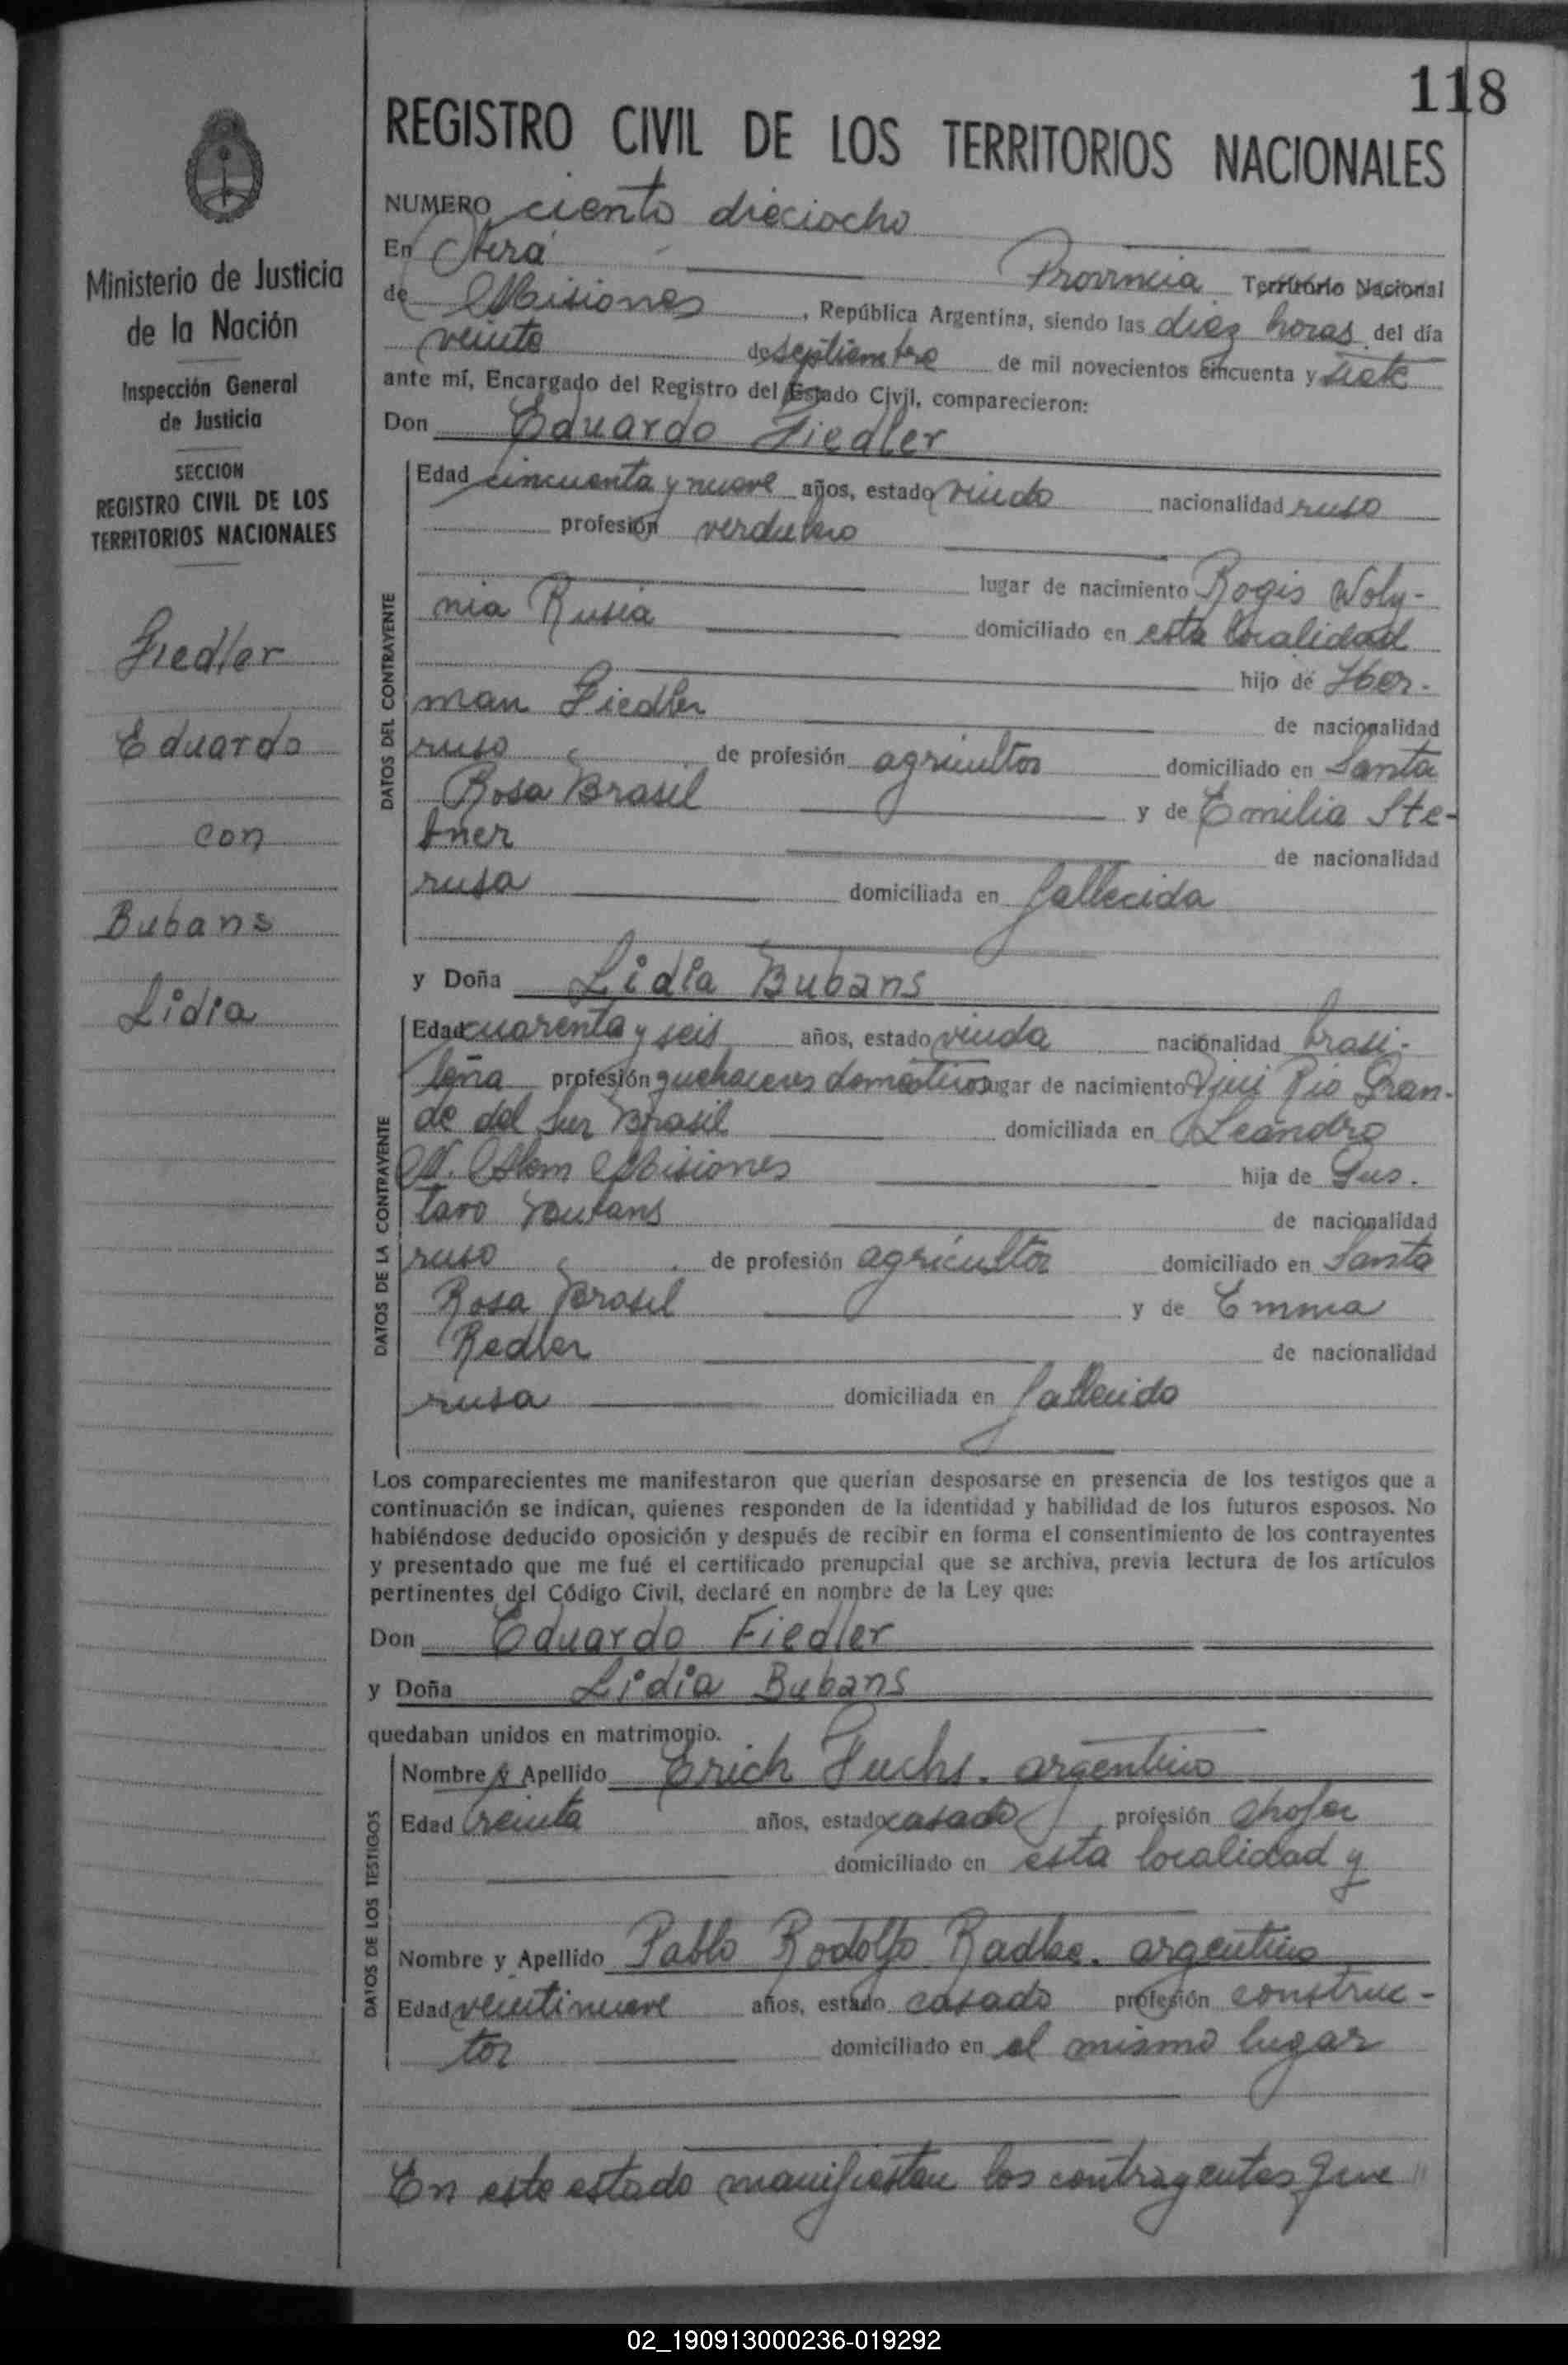 118
REGISTRO CIVIL DE LOS TERRITORIOS NACIONALES
Ministerio de Justicia
de la Nación
Inspección General
de Justicia
SECCION
REGISTRO CIVIL DE LOS
TERRITORIOS NACIONALES
Fiedler
Eduardo
con
Bubans
Lidia
NUMERO ciento dieciocho
En Oberá Provincia Territorio Nacional
de Misiones, República Argentina, siendo las diez horas del día
veinte de septiembre de mil novecientos cincuenta y siete
ante mí, Encargado del Registro del Estado Civil, comparecieron:
Don Eduardo Fiedler
DATOS DEL CONTRAYENTE
Edad cincuenta y nueve años, estado viudo nacionalidad ruso
profesión verdulero
lugar de nacimiento Rogis Woly-
nia Rusia domiciliado en esta localidad
hijo de Her-
man Fiedler de nacionalidad
ruso de profesión agricultor domiciliado en Santa
Rosa Brasil y de Emilia Ste-
bner de nacionalidad
rusa domiciliada en fallecida
y Doña Lidia Bubans
DATOS DE LA CONTRAYENTE
Edad cuarenta y seis años, estado viuda nacionalidad brasi-
leña profesión quehaceres domésticos lugar de nacimiento Ijui Rio Gran-
de del Sur Brasil domiciliada en Leandro
N. Alem Misiones hija de Gus-
tavo Bubans de nacionalidad
ruso de profesión agricultor domiciliado en Santa
Rosa Brasil y de Emma
Redler de nacionalidad
rusa domiciliada en fallecido
Los comparecientes me manifestaron que querían desposarse en presencia de los testigos que a
continuación se indican, quienes responden de la identidad y habilidad de los futuros esposos. No
habiéndose deducido oposición y después de recibir en forma el consentimiento de los contrayentes
y presentado que me fué el certificado prenupcial que se archiva, previa lectura de los artículos
pertinentes del Código Civil, declaré en nombre de la Ley que:
Don Eduardo Fiedler
y Doña Lidia Bubans
quedaban unidos en matrimonio.
DATOS DE LOS TESTIGOS
Nombre y Apellido Erich Fuchs. argentino
Edad treinta años, estado casado profesión chofer
domiciliado en esta localidad y
Nombre y Apellido Pablo Rodolfo Radke. argentino
Edad veintinueve años, estado casado profesión construc-
tor domiciliado en el mismo lugar
En este estado manifiestan los contrayentes que "
02_190913000236-019292